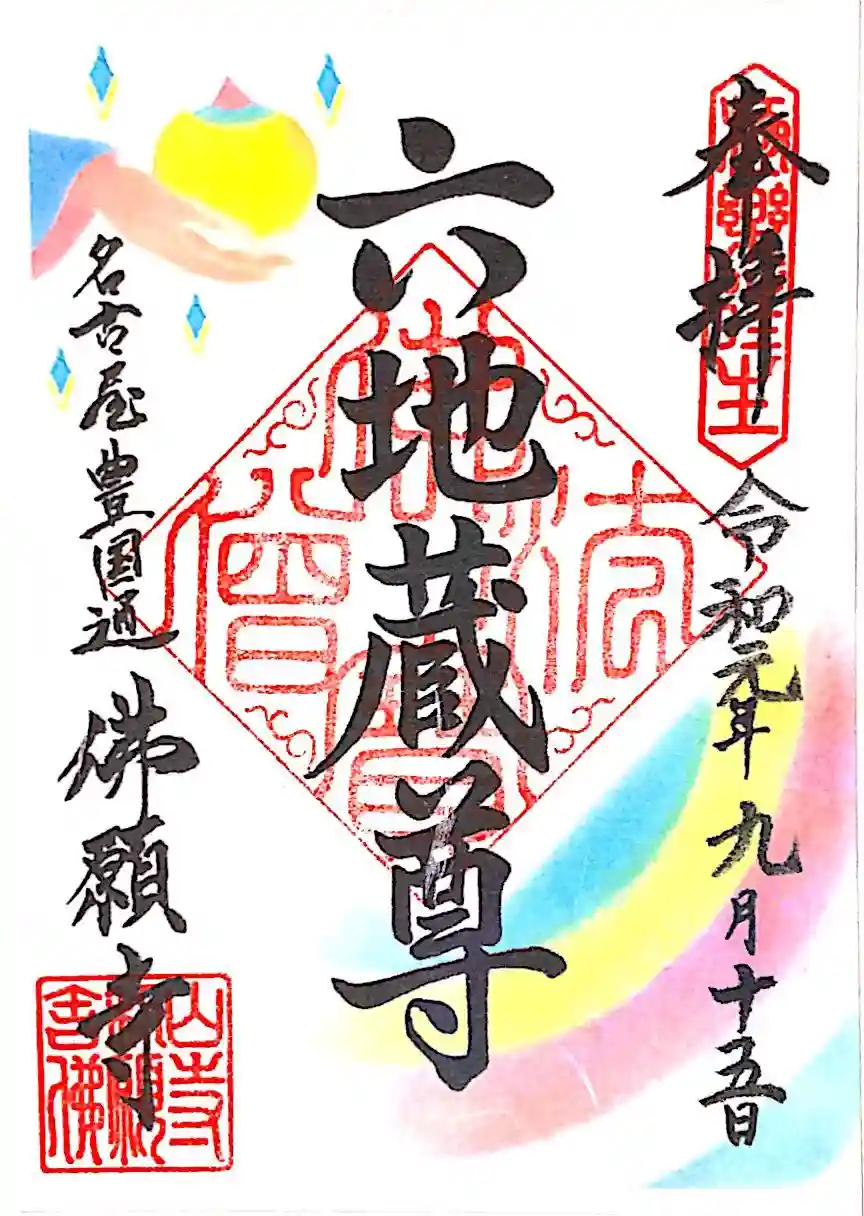 奉拝
令和元年九月十五日
六地蔵尊
名古屋豊国通
佛願寺
佛法僧寶